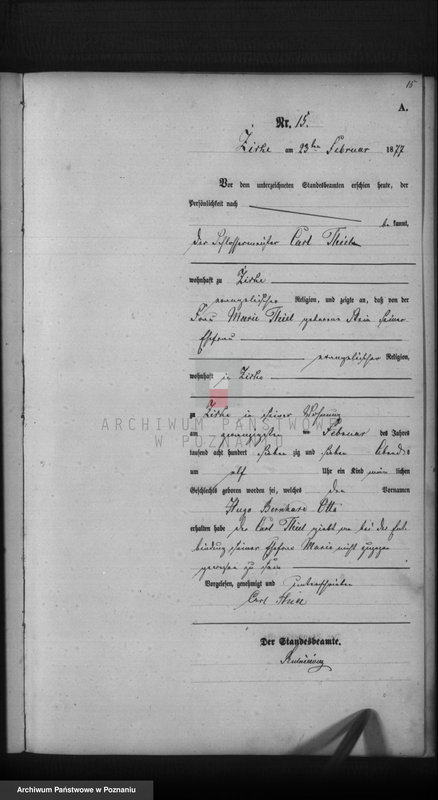 15
A.
Nr. 15.
Zirke am 23ten Februar 1877
Vor dem unterzeichneten Standesbeamten erschien heute, der
Persönlichkeit nach
be kannt,
der Schlossermeister Carl Thiel
wohnhaft zu Zirke
evangelischer Religion, und zeigte an, daß von der
Frau Marie Thiel geborene Stein seiner
Ehefrau
evangelischer Religion,
wohnhaft in Zirke
zu Zirke in seiner Wohnung
am zwanzigsten ten Februar des Jahres
tausend acht hundert sieben zig und sieben Abends
um elf Uhr ein Kind männ lichen
Geschlechts geboren worden sei, welches den Vornamen
Hugo Bernhard Otto
erhalten habe der Carl Thiel giebt an bei der Ent
bindung seiner Ehefrau Marie nicht zugegen
gewesen zu sein
Vorgelesen, genehmigt und unterschrieben
Carl Thiel
Der Standesbeamte.
ARCHIWUM PAŃSTWOWE
W POZNANIU
Archiwum Państwowe w Poznaniu